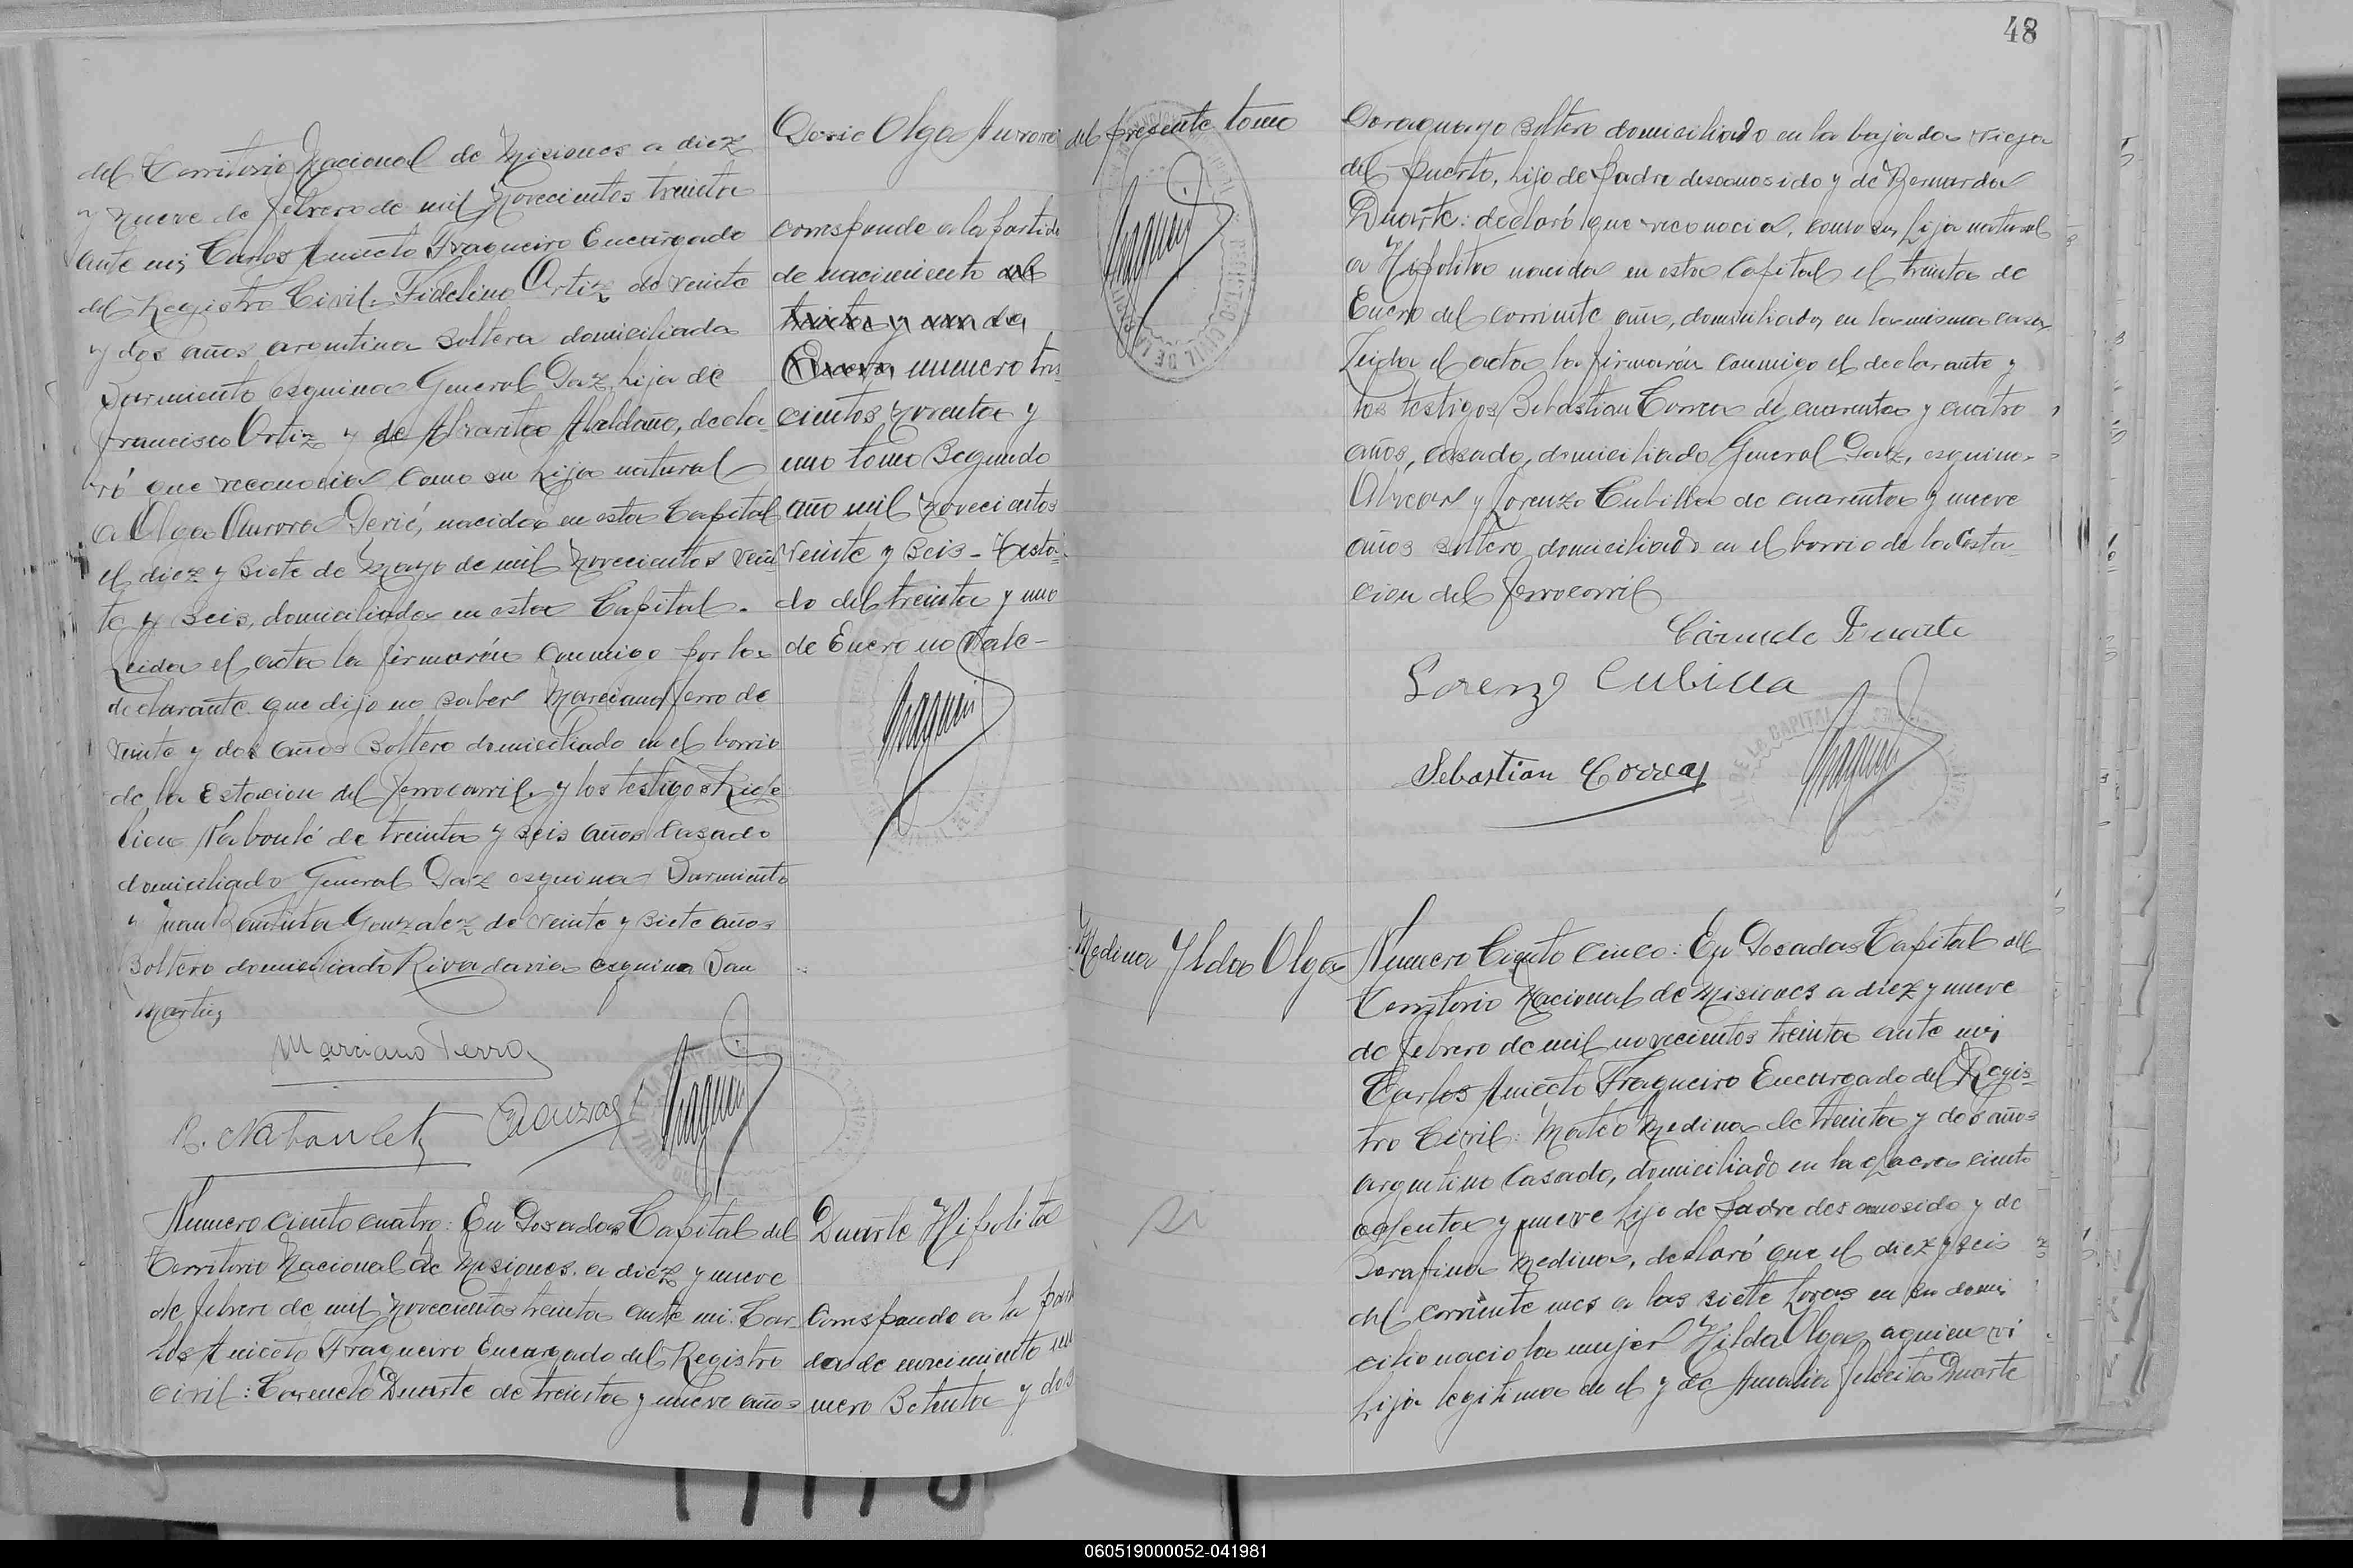 del Territorio Nacional de Misiones a diez
y nueve de febrero de mil novecientos treinta
ante mi, Carlos Aniceto Fragueiro Encargado
del Registro Civil. Fidelina Ortiz de veinte
y dos años argentina soltera domiciliada
Sarmiento esquina General Paz, hija de
Francisco Ortiz y de Alvarita Abeldaño, decla-
ró que reconocia como su hija natural
a Olga Aurora, nacida en esta Capital
el diez y siete de Mayo de mil novecientos vein
te y seis, domiciliada en esta Capital.
Leida el acta la firmarón conmigo por la
declarante que dijo no saber Marciano Ferro de
veinte y dos años soltero domiciliado en el barrio
de la Estacion del ferrocarril y los testigos
de treinta y seis años casado
domiciliado General Paz esquina Sarmiento
y Juan Bautista Gonzalez de veinte y siete años
soltero domiciliado Rivadavia esquina San
Martin,
Marciano Ferro
R. Naboulet
Olga Aurora
corresponde a la partida
de nacimiento del
treinta y uno de
Enero, numero tres-
cientos noventa y
uno tomo Segundo
año mil novecientos
veinte y seis - Testa-
do del treinta y uno
de Enero no Vale-
Numero ciento cuatro: En Posadas Capital del
Territorio Nacional de Misiones, a diez y nueve
de febrero de mil novecientos treinta ante mi: Car-
los Aniceto Fragueiro Encargado del Registro
civil: Carmelo Duarte de treinta y nueve años
Duarte Hipolita
Corresponde a la parti
da de nacimiento nu
mero Setenta y dos
48
del presente tomo
Paraguayo soltero domiciliado en la bajada vieja
del puerto, hijo de padre desconosido y de Bernarda
Duarte: declaró que reconocia, como su hija natural
a Hipolita nacida en esta Capital el treinta de
Enero del corriente año, domiciliada en la misma casa
Leida el acta la firmarón conmigo el declarante y
los testigos Sebastian Correa de cuarenta y cuatro
años, casado, domiciliado General Paz, esquina
Alvear y Lorenzo Cubilla de cuarenta y nueve
años soltero domiciliado en el barrio de la Esta-
cion del ferrocarril
Carmelo Duarte
Lorenzo Cubilla
Sebastian Correa
Medina Ilda Olga
si
Numero Ciento Cinco: En Posadas Capital del
Territorio Nacional de Misiones a diez y nueve
de febrero de mil novecientos treinta ante mi,
Carlos Aniceto Fragueiro Encargado del Regis-
tro Civil: Mateo Medina de treinta y dos años
argentino casado, domiciliado en la chacra ciento
ochenta y nueve hijo de padre desconosido y de
Serafina Medina, declaró que el diez y seis
del corriente mes a las siete horas en su domi
cilio nacio la mujer Hilda Olga, a quien vi
hija legitima de el y de Amalia Felicita Duarte
060519000052-041981